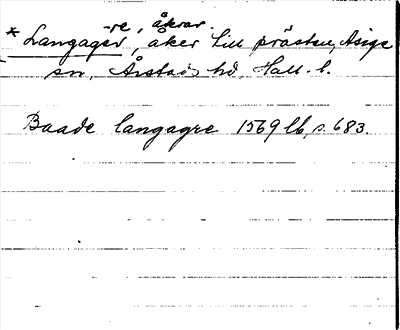 -re, åkrar.
* Langager, åker till prästen, Asige
sn, Årstads hd, Hall. l.
Baade langagre 1569 lb, s. 683.